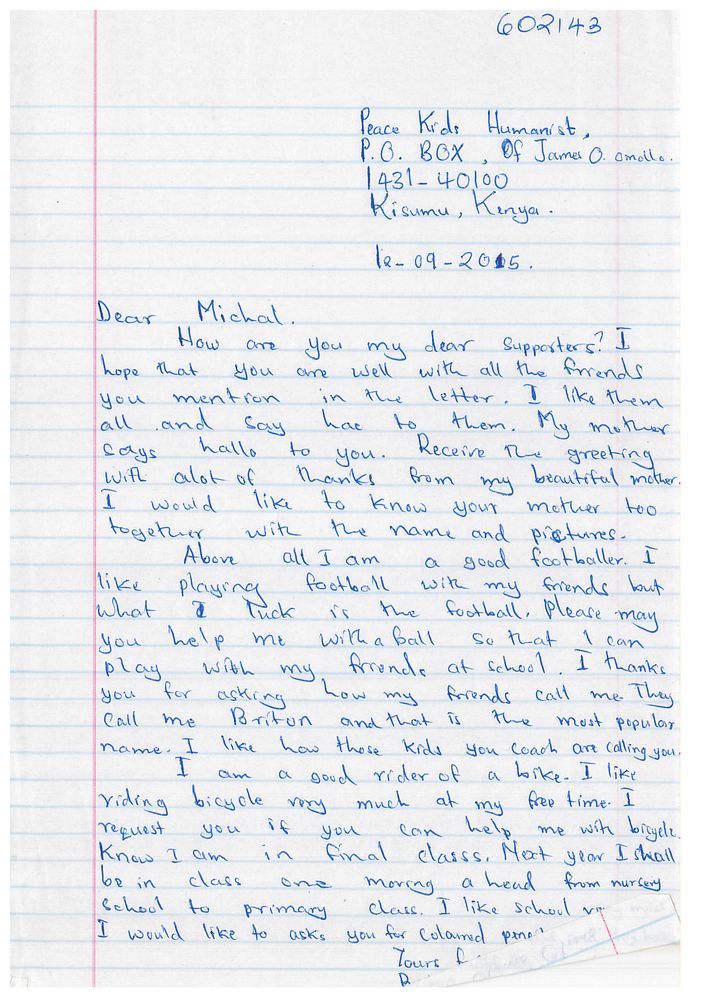 602143
Peace Kids Humanist,
P.O. BOX, Of James O. omollo.
1431-40100
Kisumu, Kenya.
12-09-2015.
Dear Michal.
How are you my dear supporters? I
hope that you are well with all the friends
you mention in the letter. I like them
all and say hae to them. My mother
says hallo to you. Receive the greeting
with alot of thanks from my beautiful mother.
I would like to know your mother too
together with the name and pictures.
Above all I am a good footballer. I
like playing football with my friends but
what I luck is the football. Please may
you help me with a ball so that I can
play with my friends at school. I thanks
you for asking how my friends call me. They
call me Briton and that is the most popular
name. I like how those kids you coach are calling you.
I am a good rider of a bike. I like
riding bicycle very much at my free time. I
request you if you can help me with bicycle.
Know I am in final classs. Next year I shall
be in class one moving a head from nursery
school to primary class. I like school
I would like to asks you for coloured
Yours